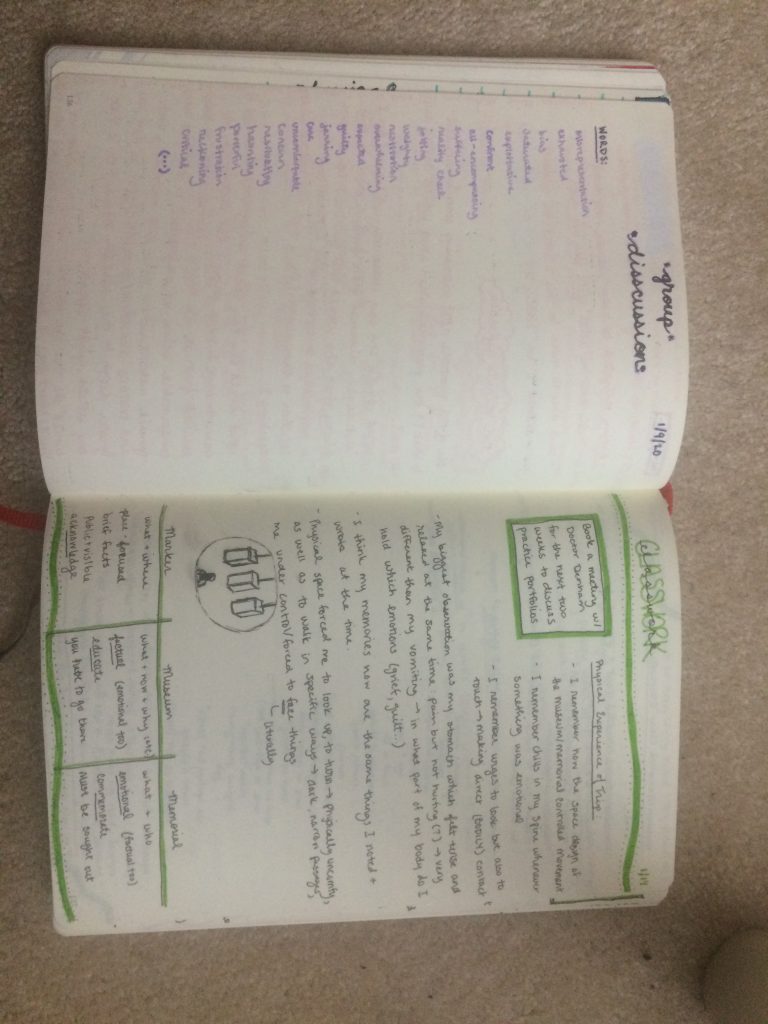 "group"
disscussion
1/9/20
WORDS:
misrepresentation
exhausted
bias
desecrated
exploitative
confront
all-encompassing
suffering
reality check
jolting
weighty
overwhelming
expected
guilty
jarring
care
uncomfortable
concern
responsibility
haunting
powerful
frustration
reckoning
critical
(...)
CLASSWORK
1/14
Book a meeting w/
Doctor Denham
for the next two
weeks to discuss
practice portfolios
Physical Experience of Trip
- I remember how the space design at
the museum/memorial controlled movement
- I remember chills in my spine whenever
something was emotional
- I remember urges to look but also to
touch → making direct (BODILY) contact
- My biggest observation was my stomach which felt tense and
relaxed at the same time, pain but not hurting (?) → very
different than my vomiting → in what part of my body do I
hold which emotions (grief, guilt..)
- I think my memories now are the same things I noted +
wrote at the time.
- Physical space forced me to look up, to turn → physically uncomfy,
as well as to walk in specific ways → dark, narrow passages,
me under control/forced to face things
↳ literally
Marker
what + where
place focused
brief facts
Public + visible
acknowledge
Museum
what + how + why (etc)
factual (emotional too)
educate
you have to go there
Memorial
what + who
emotional (factual too)
commemorate
Must be sought out